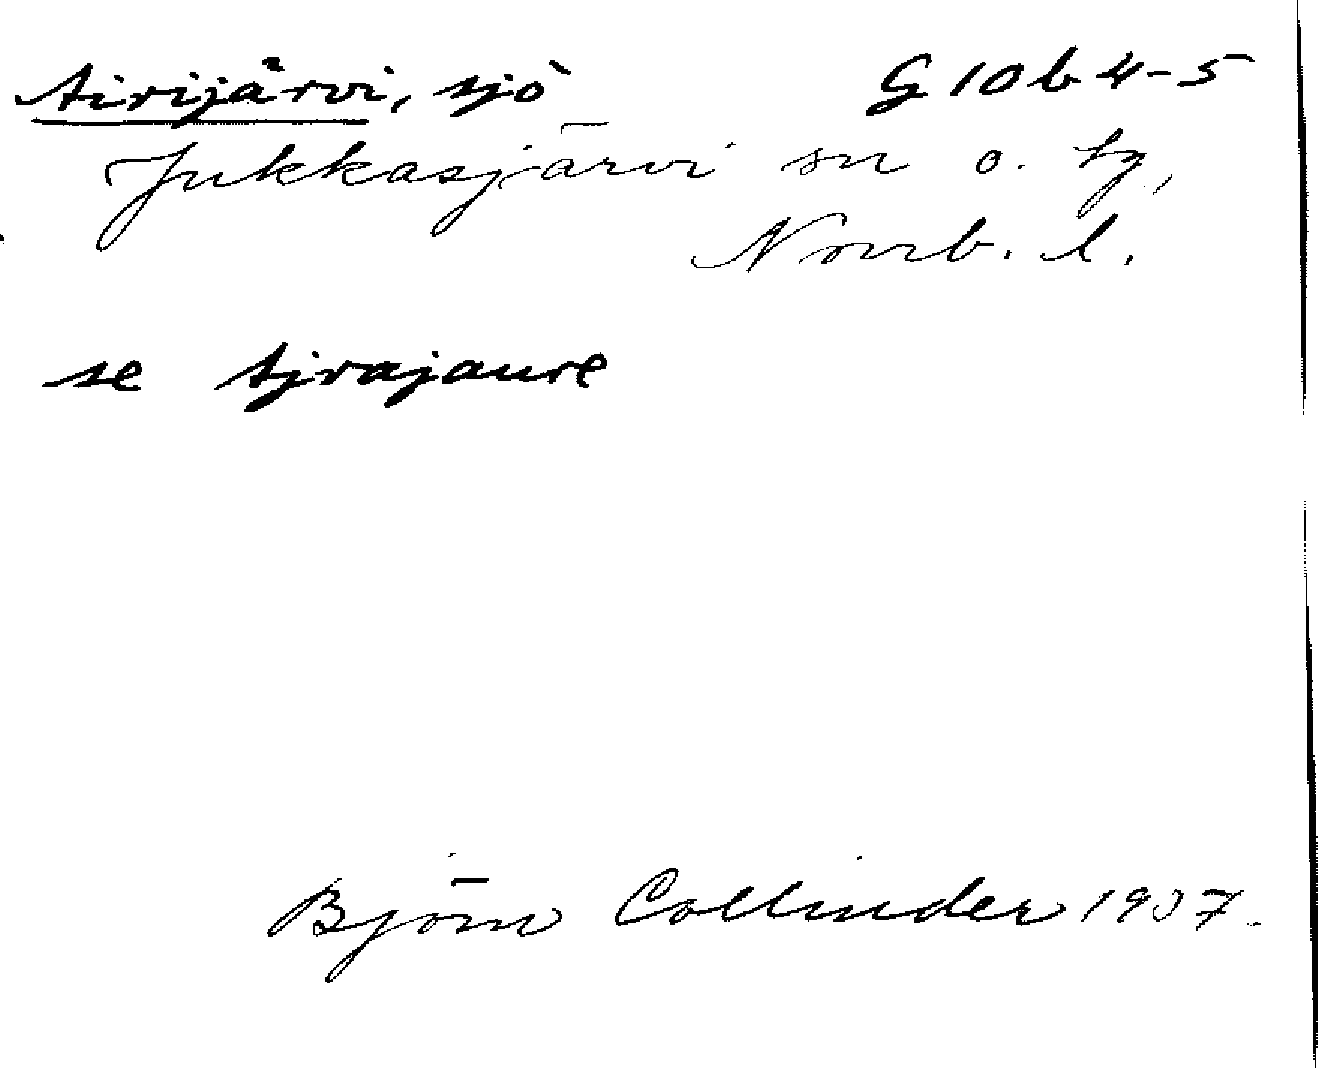 Airijärvi, sjö G 10 b 4-5
Jukkasjärvi sn o. tg,
Norrb. l.
se Ajrajaure
Björn Collinder 1937.